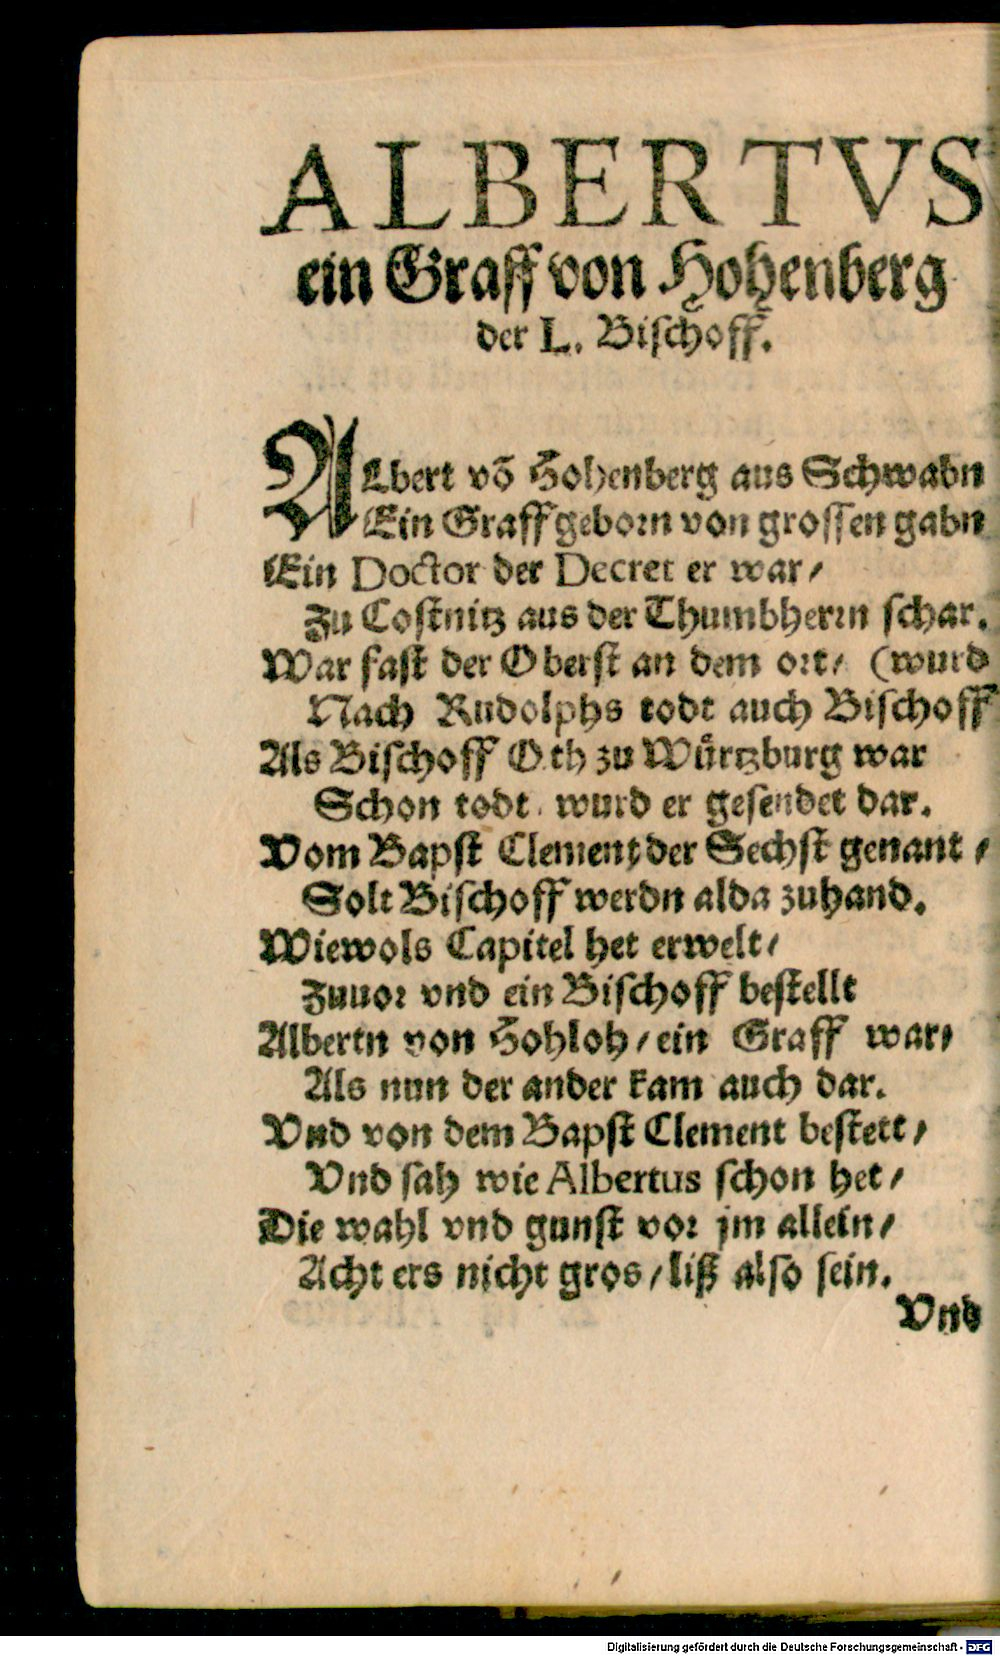 ALBERTVS
ein Graff von Hohenberg
der L. Bischoff.
ALbert võ Hohenberg aus Schwabn
Ein Graff geborn von grossen gabn
Ein Doctor der Decret er war/
Zu Costnitz aus der Thumbherrn schar.
War fast der Oberst an dem ort/ (wurd
Nach Rudolphs todt auch Bischoff
Als Bischoff Oth zu Würtzburg war
Schon todt wurd er gesendet dar.
Vom Bapst Clement der Sechst genant/
Solt Bischoff werdn alda zuhand.
Wiewols Capitel het erwelt/
Zuuor vnd ein Bischoff bestellt
Albertn von Hohloh/ ein Graff war/
Als nun der ander kam auch dar.
Vnd von dem Bapst Clement bestett/
Vnd sah wie Albertus schon het/
Die wahl vnd gunst vor jm allein/
Acht ers nicht gros/ liß also sein.
Vnd
Digitalisierung gefördert durch die Deutsche Forschungsgemeinschaft - DFG